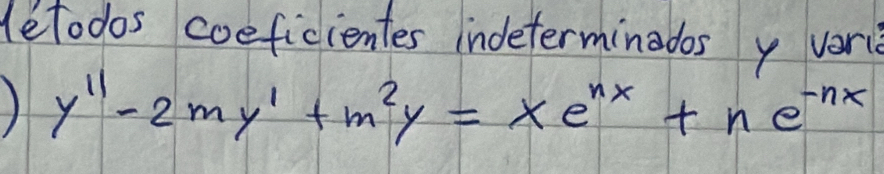 létodos coeficientes indeterminados y varia
) y'' - 2my' + m²y = xe^{nx} + ne^{-nx}